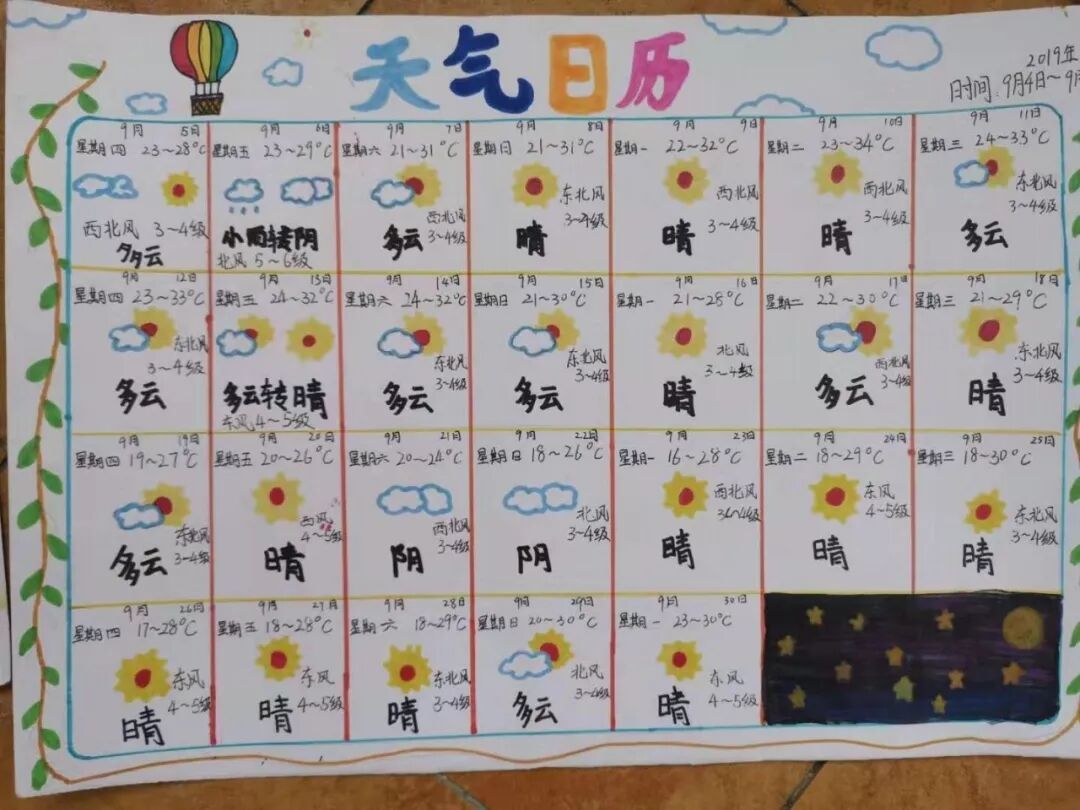 天气日历
2019年
时间:9月4日~9月
9月 5日
星期四 23~28°C
西北风 3~4级
多云
9月 6日
星期五 23~29°C
小雨转阴
北风 5~6级
9月 7日
星期六 21~31°C
西北风
3~4级
多云
9月 8日
星期日 21~31°C
东北风
3~4级
晴
9月 9日
星期一 22~32°C
西北风
3~4级
晴
9月 10日
星期二 23~34°C
西北风
3~4级
晴
9月 11日
星期三 24~33°C
东北风
3~4级
多云
9月 12日
星期四 23~33°C
东北风
3~4级
多云
9月 13日
星期五 24~32°C
多云转晴
东风 4~5级
9月 14日
星期六 24~32°C
东北风
3~4级
多云
9月 15日
星期日 21~30°C
东北风
3~4级
多云
9月 16日
星期一 21~28°C
北风
3~4级
晴
9月 17日
星期二 22~30°C
西北风
3~4级
多云
9月 18日
星期三 21~29°C
东北风
3~4级
晴
9月 19日
星期四 19~27°C
东北风
3~4级
多云
9月 20日
星期五 20~26°C
西风
4~5级
晴
9月 21日
星期六 20~24°C
西北风
3~4级
阴
9月 22日
星期日 18~26°C
北风
3~4级
阴
9月 23日
星期一 16~28°C
西北风
3~4级
晴
9月 24日
星期二 18~29°C
东风
4~5级
晴
9月 25日
星期三 18~30°C
东北风
3~4级
晴
9月 26日
星期四 17~28°C
东风
4~5级
晴
9月 27日
星期五 18~28°C
东风
4~5级
晴
9月 28日
星期六 18~29°C
东北风
3~4级
晴
9月 29日
星期日 20~30°C
北风
3~4级
多云
9月 30日
星期一 23~30°C
东风
4~5级
晴